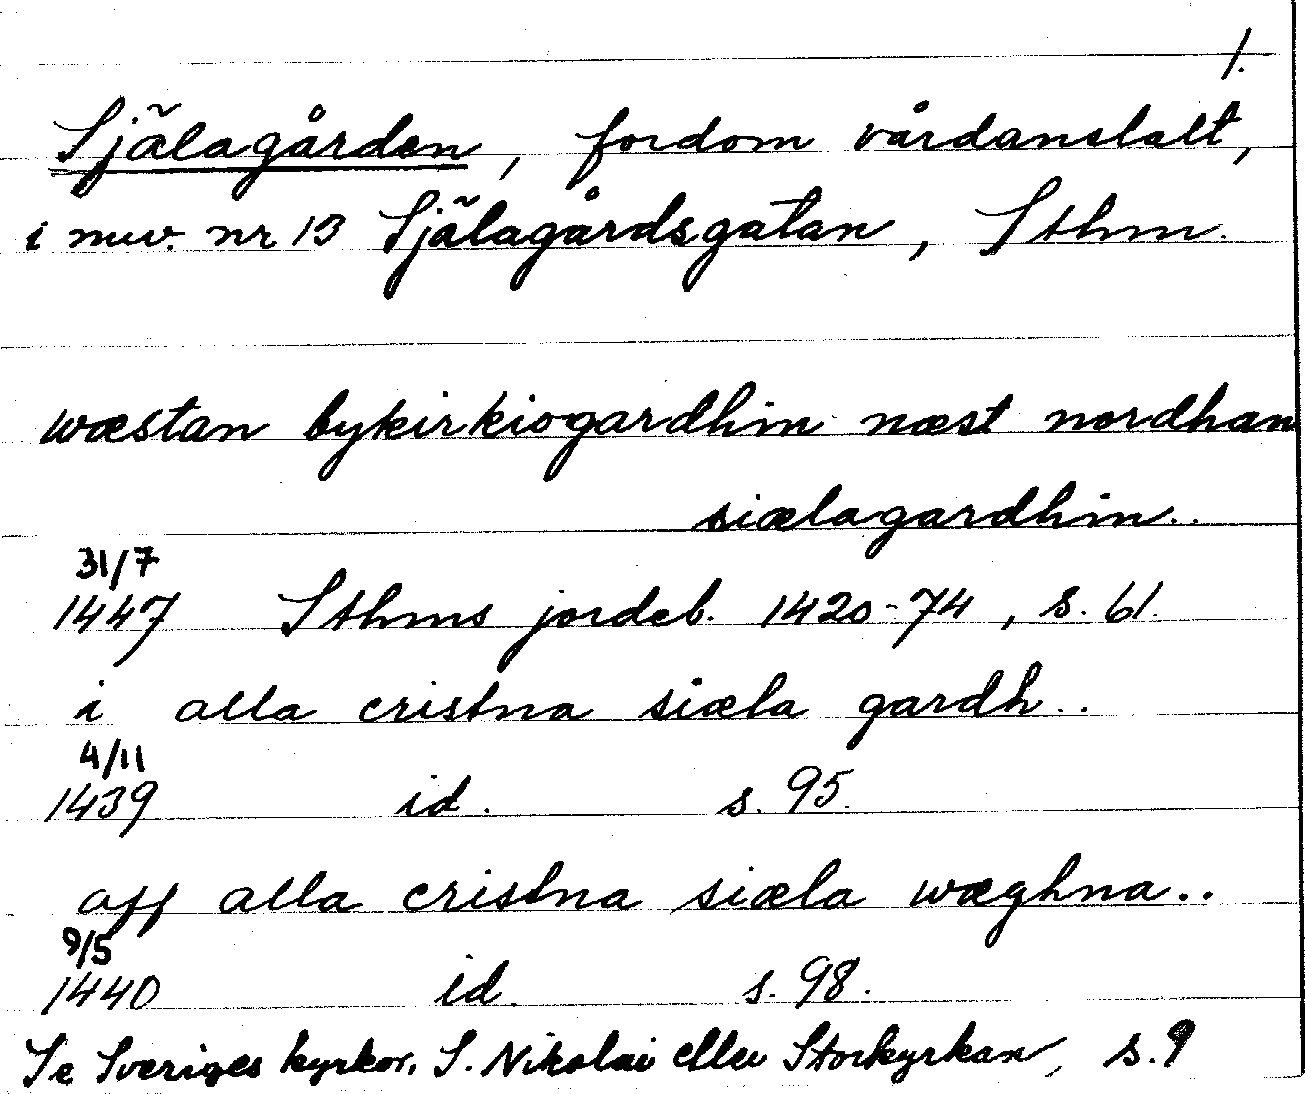 1.
Själagården, fordom vårdanstalt,
i nuv. nr 13 Själagårdsgatan, Sthm.
wæstan bykirkiogardhin næst nordhan
siælagardhin..
31/7
1447 Sthms jordeb. 1420-74, s. 61.
i alla cristna siæla gardh..
4/11
1439 id. s. 95.
aff alla cristna siæla wæghna..
9/5
1440 id. s. 98.
Se Sveriges kyrkor, S. Nikolai eller Storkyrkan, s. 9